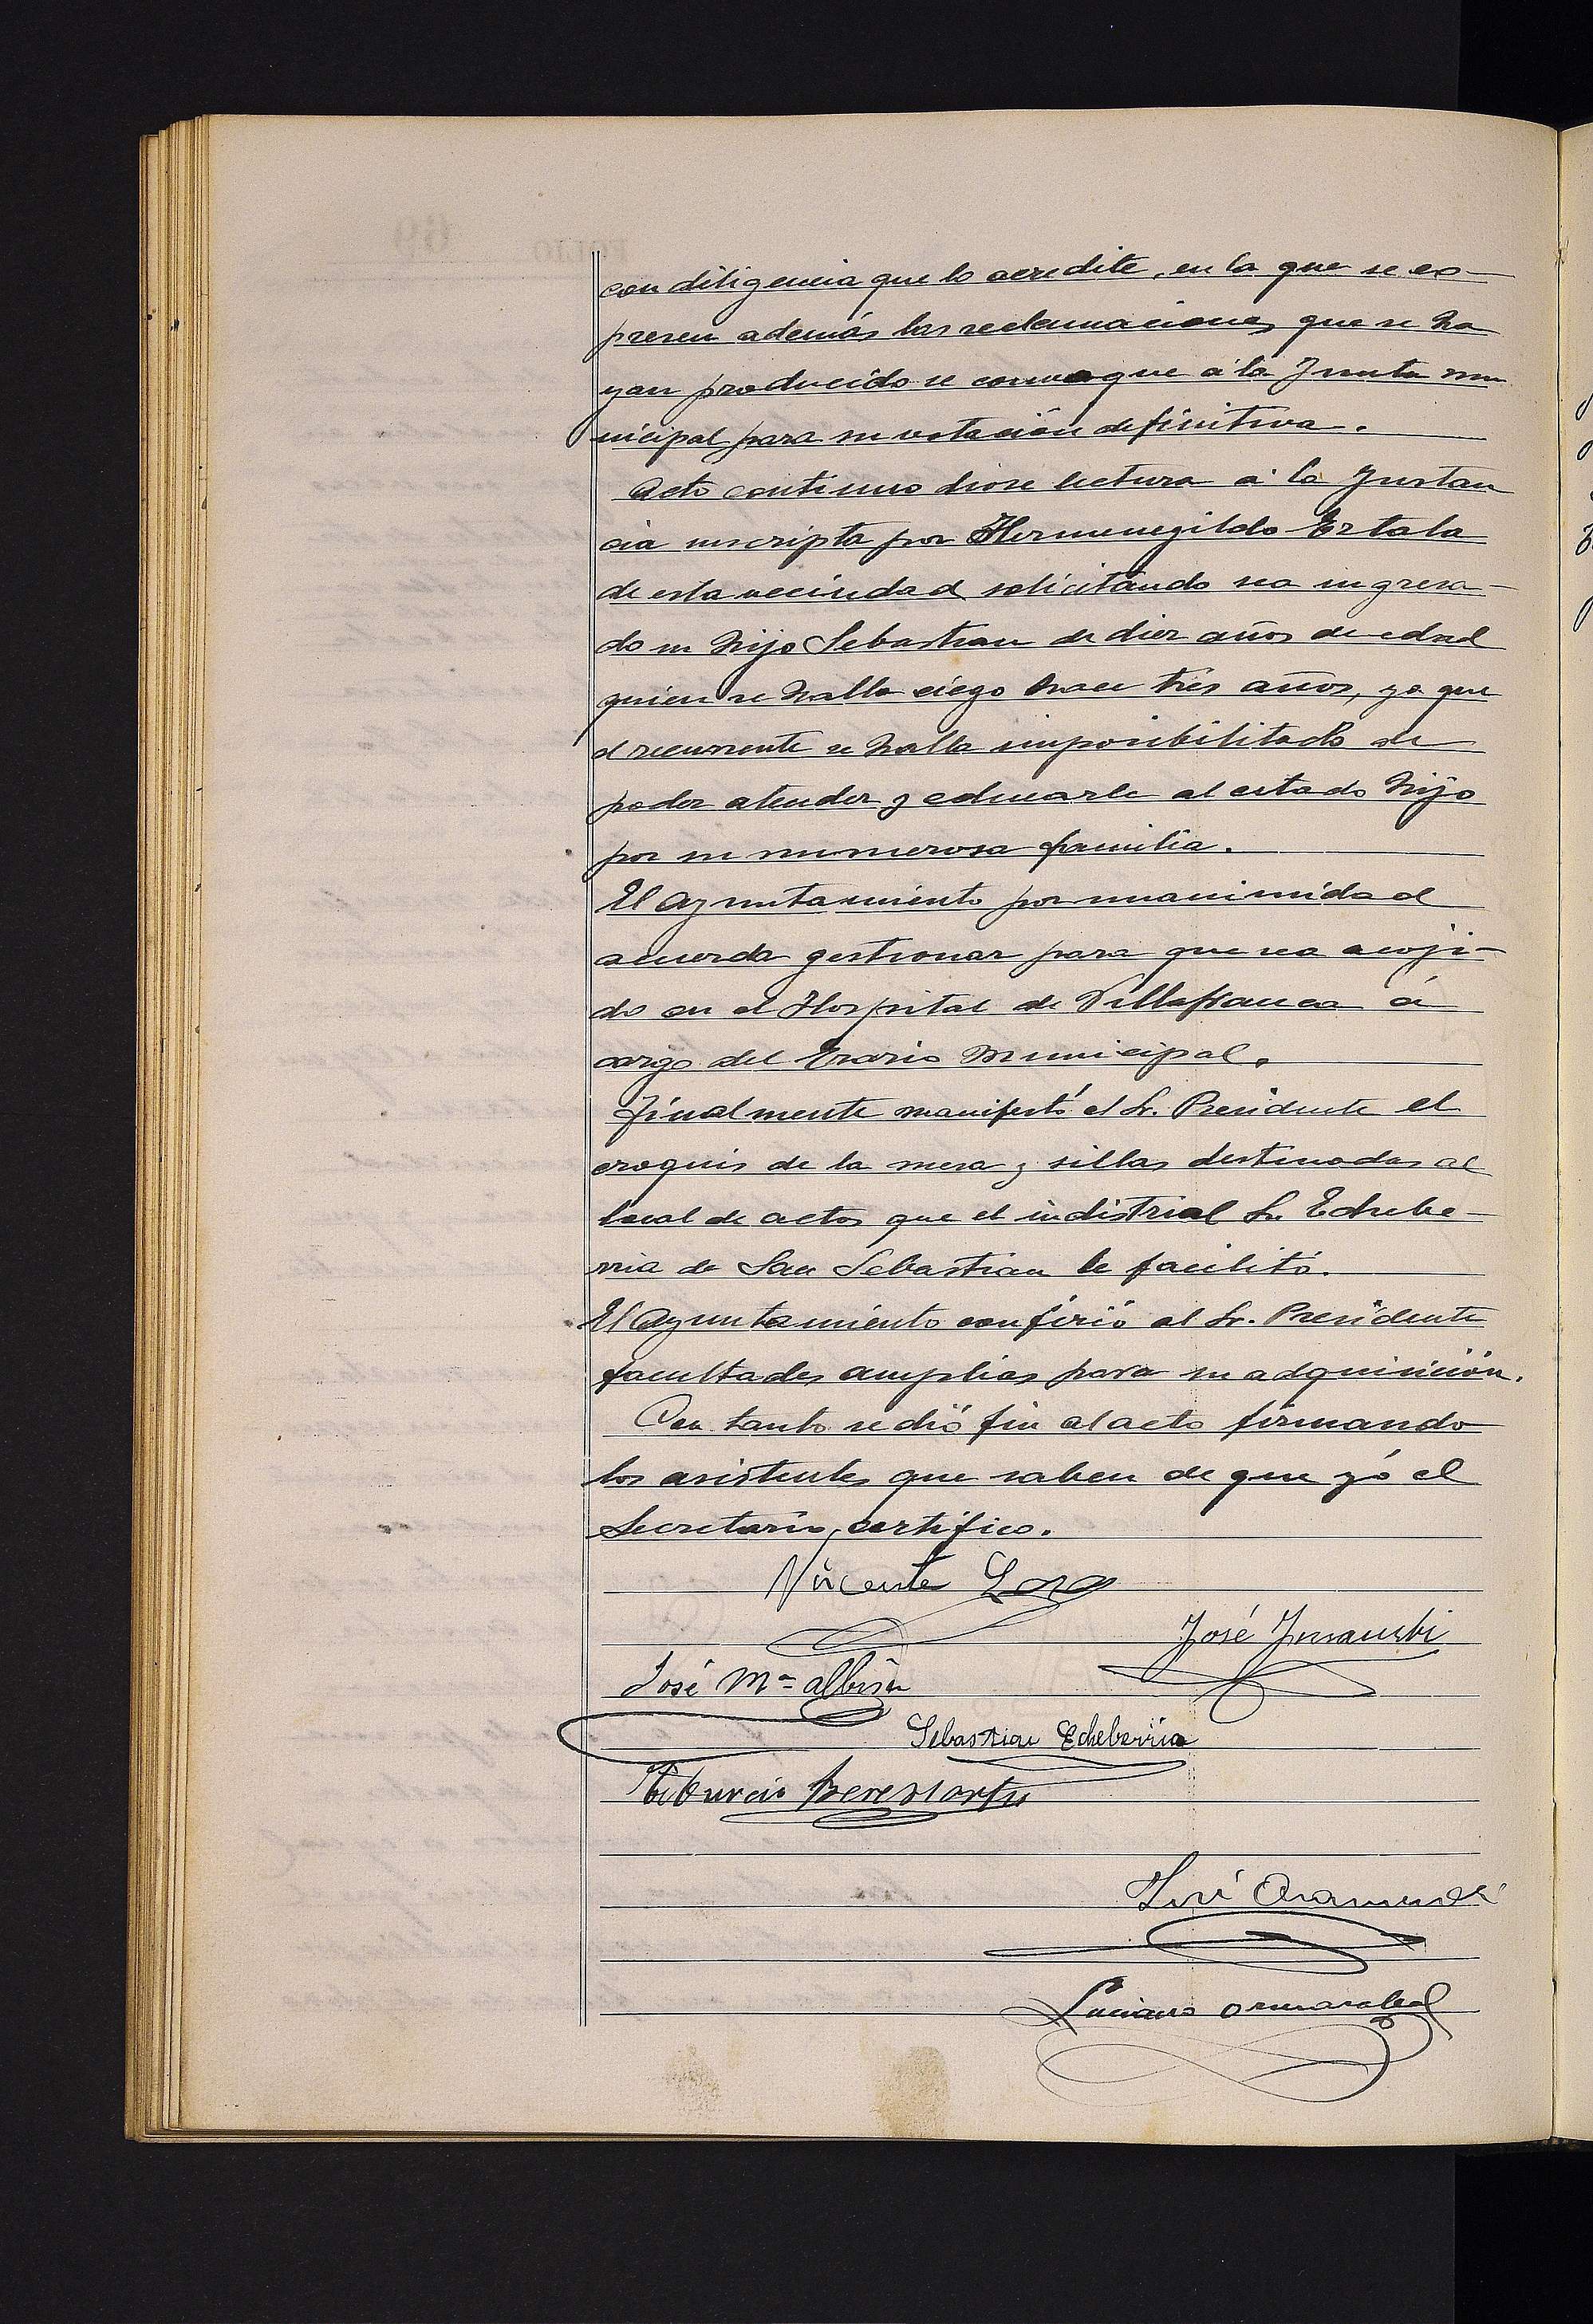 con diligencia que lo acredite, en la que se ex-
presen además las reclamaciones que se ha
yan producido se convoque á la Junta mu
nicipal para su votación definitiva.
Acto continuo diose lectura á la Instan
cia suscripta por Hermenegildo Eztala
de esta vecindad solicitando sea ingresa-
do su hijo Sebastian de diez años de edad
quien se halla ciego hace tres años, ya que
el recurrente se halla imposibilitado de
poder atender y educarle al citado hijo
por su numerosa familia.
El Ayuntamiento por unanimidad
acuerda gestionar para que sea acoji-
do en el Hospital de Villafranca á
cargo del Erario Municipal.
Finalmente manifestó el Sr. Presidente el
croquis de la mesa y sillas destinadas al
local de actos que el indistrial Sr. Echebe-
rria de San Sebastian le facilitó.
El Ayuntamiento confirió al Sr. Presidente
facultades amplias para su adquisición.
Con tanto se dió fin al acto firmando
los asistentes que saben de que yó el
Secretario, certifico.
Vicente
José
José Mª Albisu
Sebastian Echeberria
Tiburcio Beresiartu
José
Luciano Ormazabal